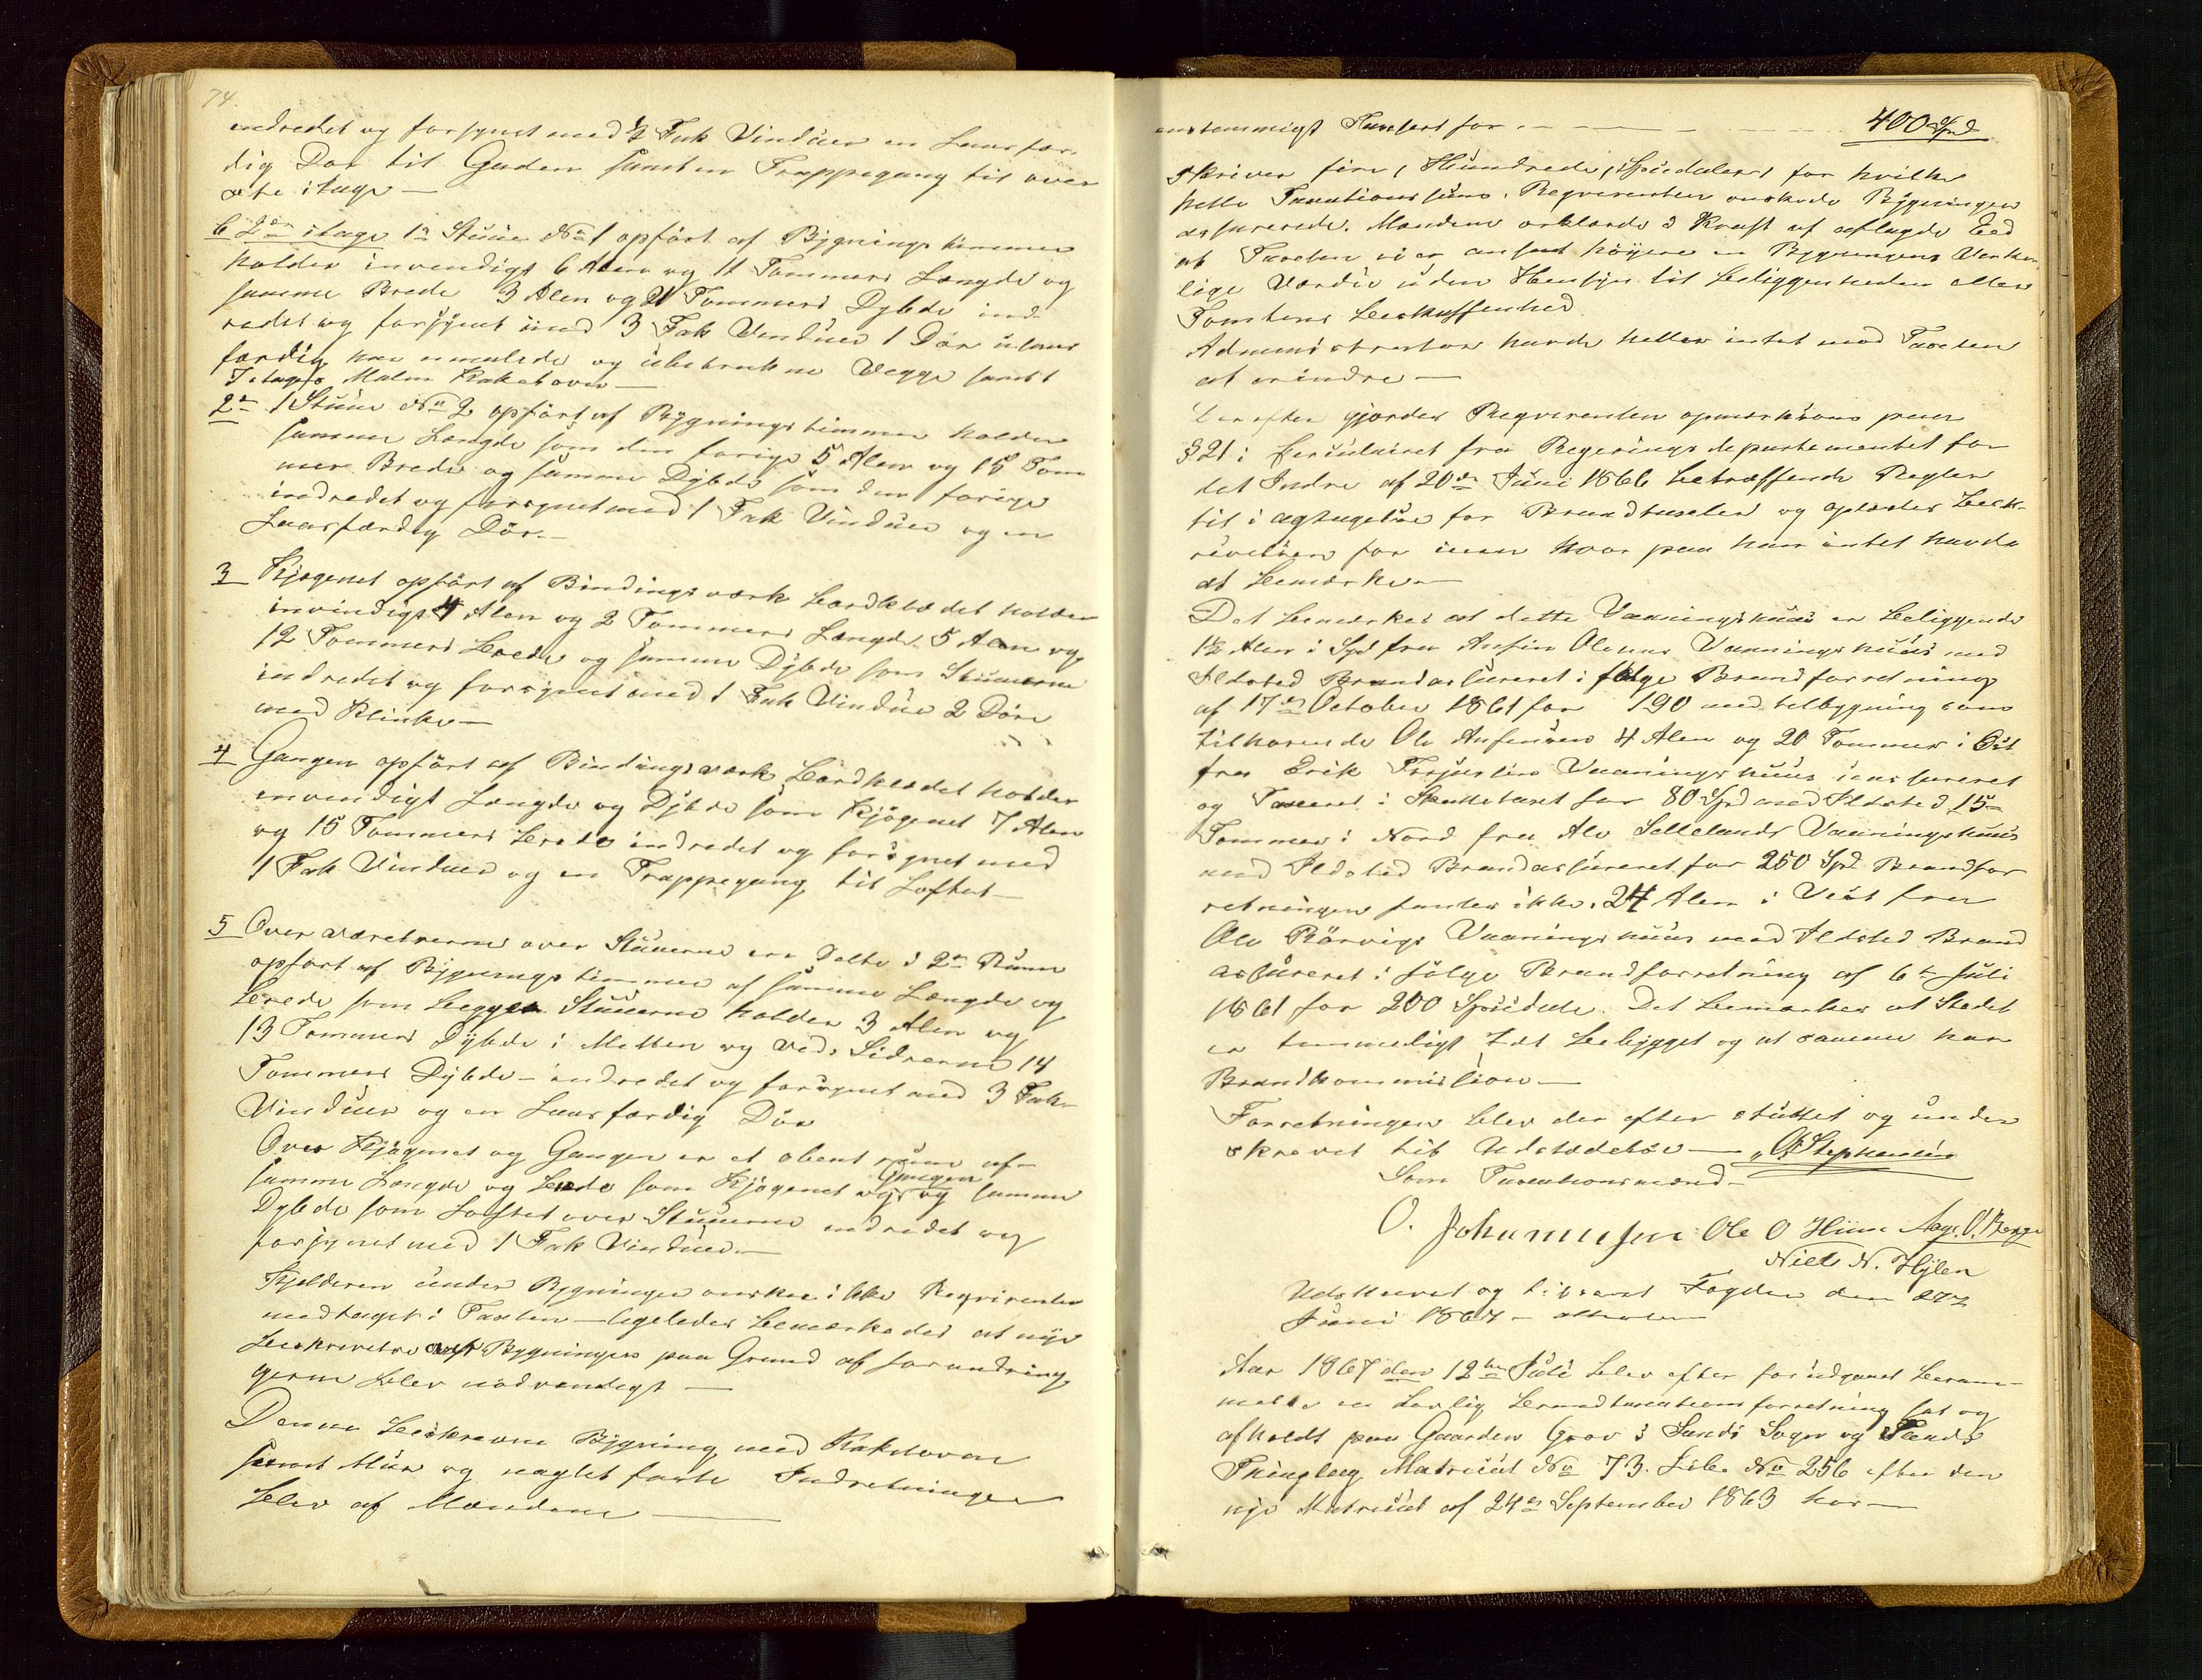 74.
indredet og forsynet med 1/2 Fak Vinduer en Laasfær-
dig Dør til Gaden samt en Trappegang til øver
ste itage —
b 2den itage 1ste Stue No 1 opført af Bygningstimmer
holder invendigt 6 Alen og 11 Tommers Længde og
samme Brede 3 Alen og 21 Tommers Dybde ind-
redet og forsynet med 3 Fak Vinduer 1 Dør ulaas
færdig har umalede og ubetrukne Vegge samt
3 etages Malm Kakelovn —
2n 1 Stue No 2 opført af Bygningstimmer holder
samme Længde som den forige 5 Alen og 15 Tom
mers Brede og samme Dybde som den forige
indredet og forsynet med 1 Fak Vinduer og en
Laasfærdig Dør. —
3 Kjøgenet opført af Bindingsværk bordklædet holder
invendigt 4 Alen og 2 Tommers Længde 5 Alen og
12 Tommers brede og samme Dybde som Stuerne
indredet og forsynet med 1 Fak Vindue 2 Døre
med Klinke —
4 Gangen opført af Bindingsværk bordklædet holder
invendigt Længde og Dybde som Kjøgenet 7 Alen
og 15 Tommers brede indredet og forsynet med
1 Fak Vinduer og en Trappegang til Loftet —
5 Overværelserne over Stuerne ere Delte i 2de Rum
opført af Bygningstimmer af samme Længde og
brede som begge Stuerne holder 3 Alen og
13 Tommers Dybde i Mitten og ved Siderne 14
Tommers Dybde — indredet og forsynet med 3 Fak
Vinduer og en Laasfærdig Dør
Over Kjøgenet og Gangen er et obent rum af
samme Længde og brede som Kjøgenet og Gangen og samme
Dybde som Loftet over Stuerne indredet og
forsynet med 1 Fak Vinduer —
Kjelderen under Bygningen ønsker ikke Requirenten
medtaget i Taxten — ligeledes bemærkedes at nye
beskrivelse af Bygningen paa Grund af forandring
gerne blev nødvendigt —
Denne beskrevne Bygning med Kakelovn
samt Muur og naglet faste Indretninger
blev af Mændene —
enstemmigt Taxert for — — — 400 Spd
skriver fire, Hundrede, Speciedaler, for hvilke
hele Taxationssum Reqverenten ønskede Bygningen
assurerede. Mændene erklærede i Kraft af aflagde Eed
at Taxten ei er ansat høyere en Bygningens Verke
lige Værdie uden Hensyn til beliggenheden eller
Tomtens beskaffenhed.
Administrator havde heller intet mod Taxten
at erindre —
Derefter gjordes Reqverenten opmærksom paa
§ 21 i Circulairet fra Regjeringsdepartementet for
det Indre af 20de Juni 1866 betræffende Regler
til iagtagelse for Brandtaxter og oplæstes besk-
rivelsen for ham hvor paa han intet havde
at bemærke —
Det bemærkes at dette Vaaningshuus er beliggende
1½ Alen i Syd fra Anfin Olsens Vaaningshuus med
Ildsted Brandassureret i følge Brandforretning
af 17de October 1861 for 190 med tilbygning som
tilhørende Ole Anfinsen 4 Alen og 20 Tommer i Øst
fra Erik Vaaningshuus iassureret
og Taxeret i Skattetaxt for 80 Spd med Ildsted 15
Tommer i Nord fra Alv Sellelands Vaaningshuus
med Ildsted Brandassureret for 250 Spd Brandfor
retningen fantes ikke. 24 Alen i Vest fra
Ole Rørvigs Vaaningshuus med Ildsted Brand
assureret i følge Brandforretning af 6te Juli
1861 for 200 Spesidale. Det bemærkes at Stedet
er temmeligt tæt bebygget og at samme har
Brandkommission —
Forretningen blev der efter sluttet og under
skrevet til Udstædelse — O. Stephensen
Som Taxationsmænd —
O. Johannesen Ole O Hiim Aage. O. Berge
Niels N. Hylen
Udskrevet og Fogden den 27
Juni 1867 —
Aar 1867 den 12te Juli blev efter forudgaaet beram-
melse en lovlig brandtaxationsforretning sat og
afholdt paa Gaarden Grov i Sands Sogn og Sands
Thinglag Matricul No 73. Løbe No 256 efter den
nye Matricul af 24de September 1863 hos —